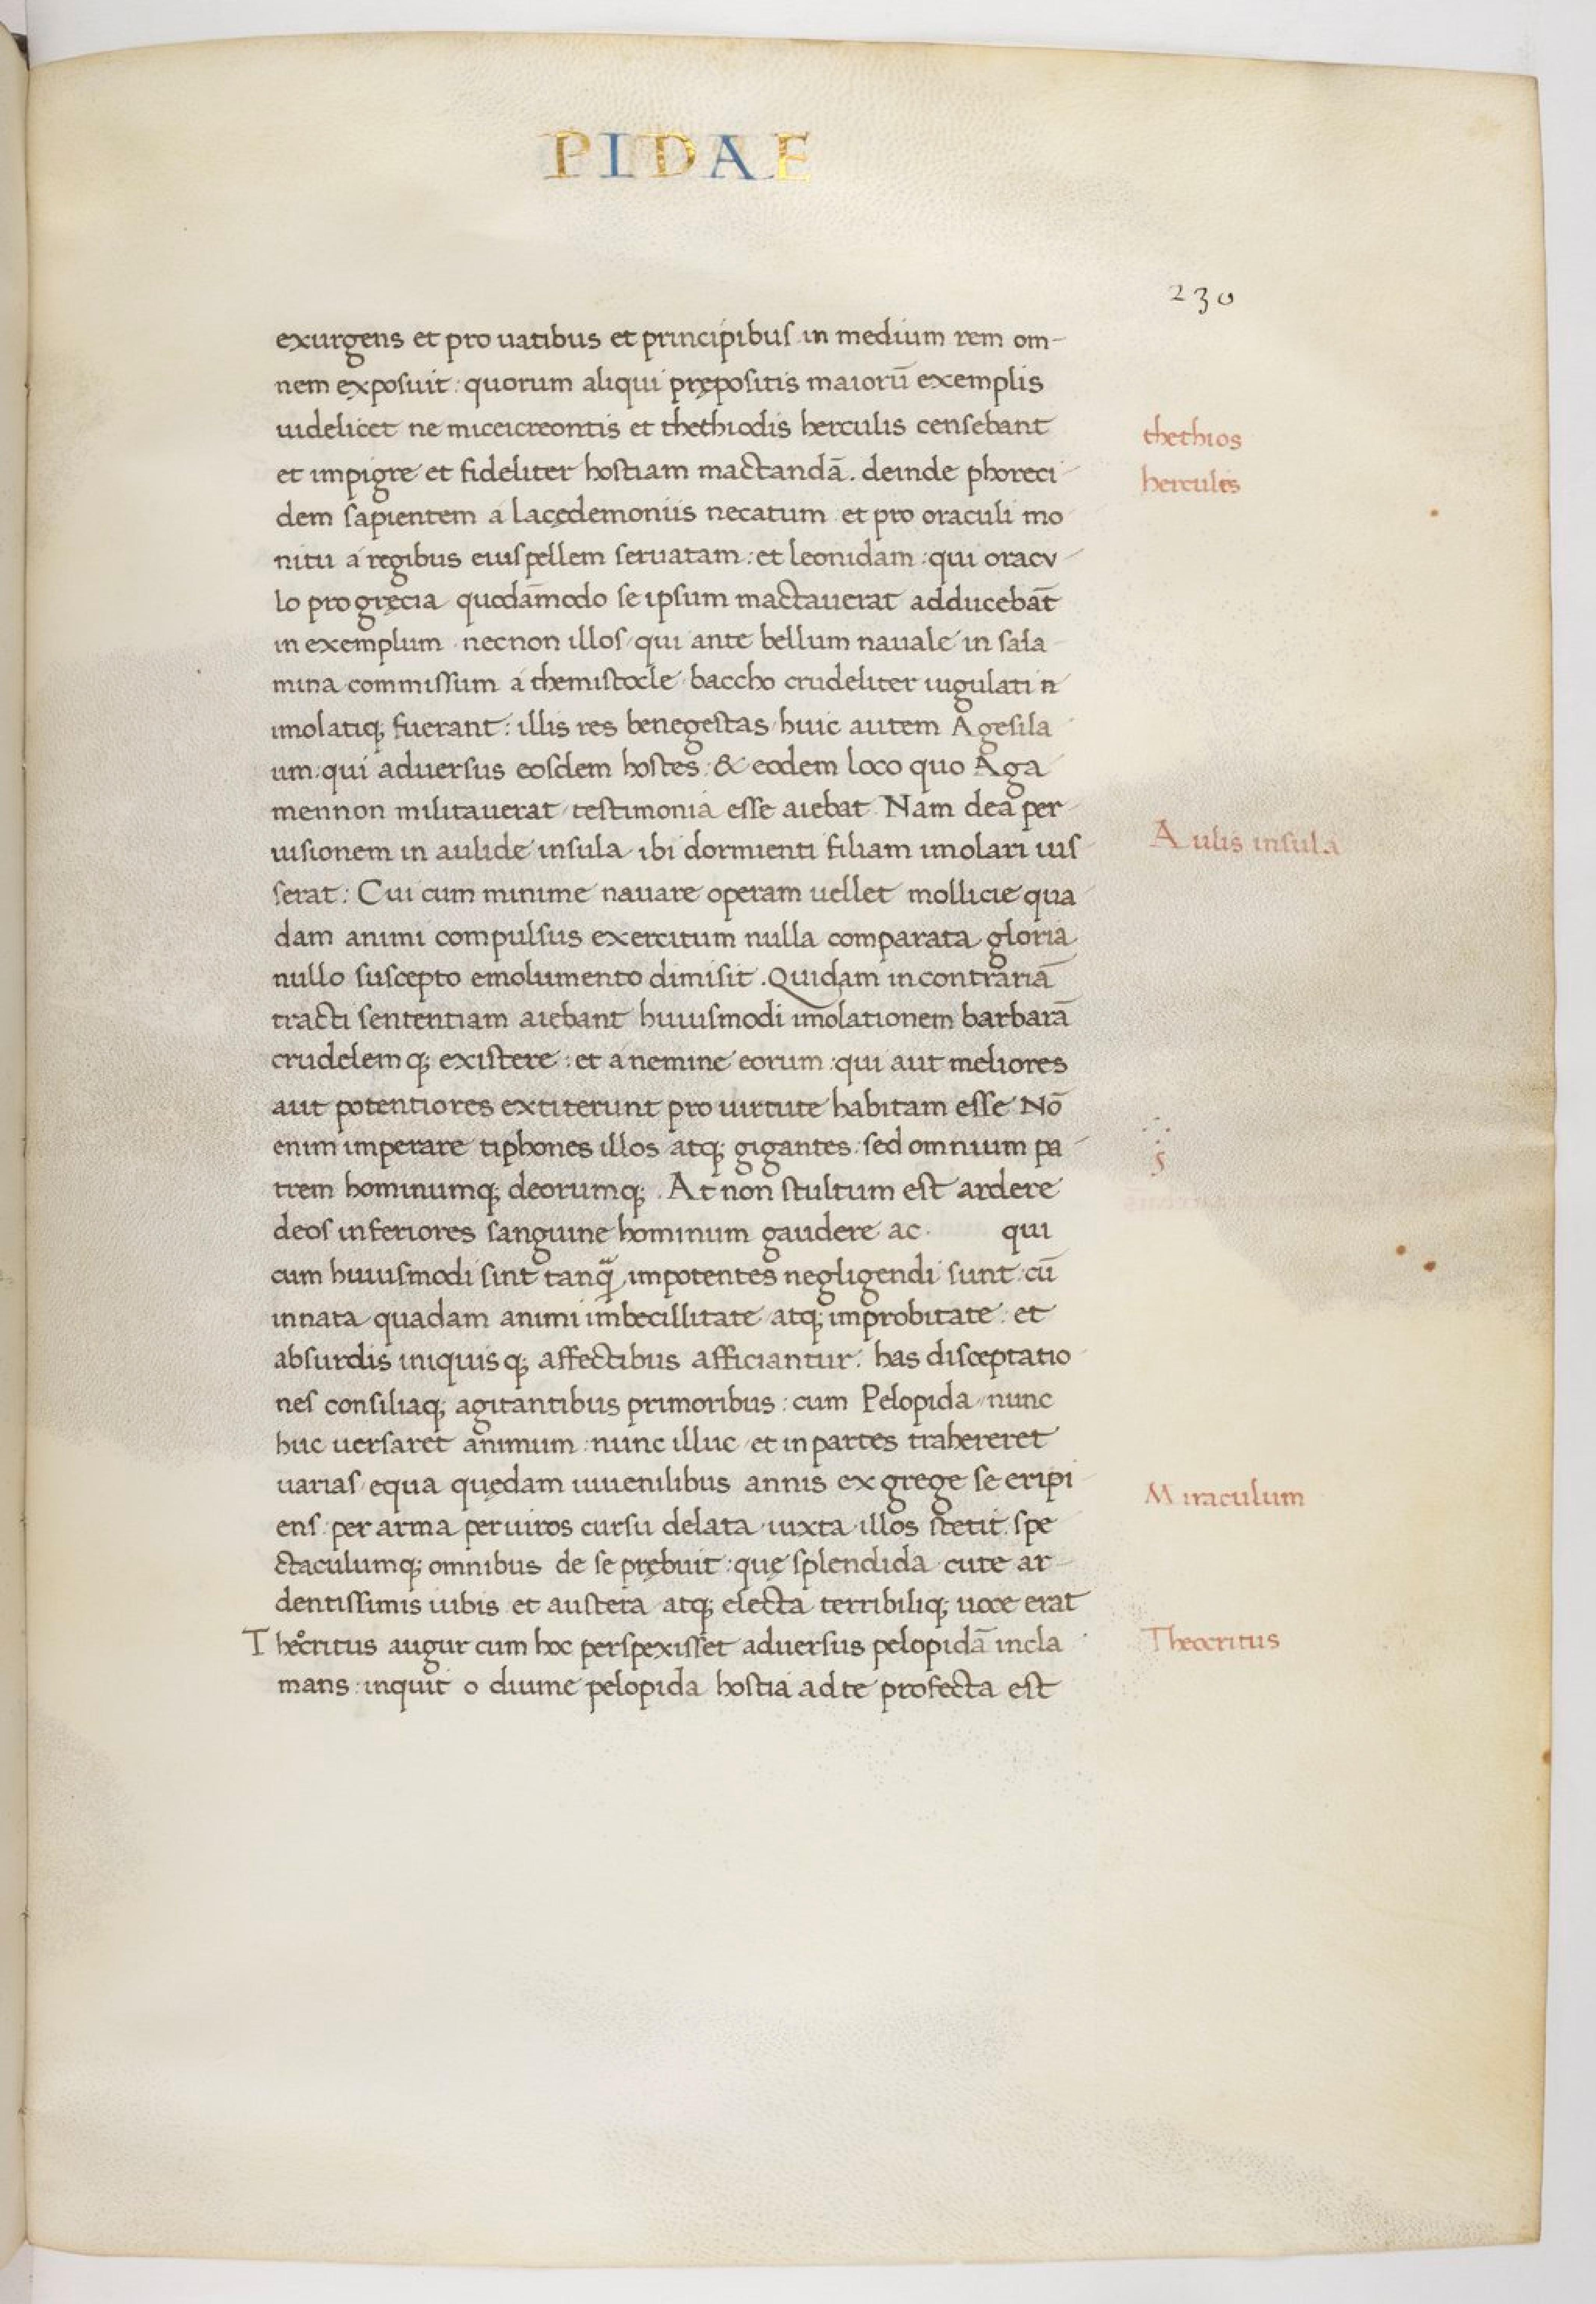 PIDAE
230
exurgens et pro uatibus et principibus in medium rem om-
nem exposuit : quorum aliqui prępositis maiorū exemplis
uidelicet ne miceicreontis et thethiodis herculis censebant
thethios
et impigre et fideliter hostiam mactandā . deinde phoreci-
hercules
dem sapientem a lacędemoniis necatum et pro oraculi mo
nitu a regibus eius pellem seruatam : et leonidam : qui oracu-
lo pro gręcia quodāmodo se ipsum mactauerat adducebāt
in exemplum . necnon illos qui ante bellum nauale in sala-
mina commissum a themistocle baccho crudeliter iugulati
imolatiq; fuerant : illis res benegestas huic autem Agesila-
um : qui aduersus eosdem hostes : & eodem loco quo Aga
mennon militauerat testimonia esse aiebat Nam dea per-
uisionem in aulide insula ibi dormienti filiam imolari ius-
Aulis insula
serat : Cui cum minime nauare operam uellet mollicie qua-
dam animi compulsus exercitum nulla comparata gloria
nullo suscepto emolumento dimisit . Quidam in contrariā
tracti sententiam aiebant huiusmodi im̄olationem barbarā
crudelemq; existere : et a nemine eorum : qui aut meliores
aut potentiores extiterunt pro uirtute habitam esse Nō
enim imperare tiphones illos atq; gigantes : sed omnium pa-
trem hominumq; deorumq; . At non stultum est ardere
deos inferiores sanguine hominum gaudere ac . qui
cum huiusmodi sint tanq̄ impotentes negligendi sunt : cū
innata quadam animi imbecillitate atq; improbitate : et
absurdis iniquisq; affectibus afficiantur . has disceptatio-
nes consiliaq; agitantibus primoribus : cum Pelopida nunc
huc uersaret animum : nunc illuc et in partes trahereret
uarias equa quędam iuuenilibus annis ex grege se eripi-
Miraculum
ens : per arma per uiros cursu delata iuxta illos stetit : spe
ctaculumq; omnibus de se prębuit : quę splendida cute ar-
dentissimis iubis et austera atq; electa terribiliq; uoce erat
Theocritus augur cum hoc perspexisset aduersus pelopidā incla-
Theocritus
mans : inquit o diuine pelopida hostia ad te profecta est